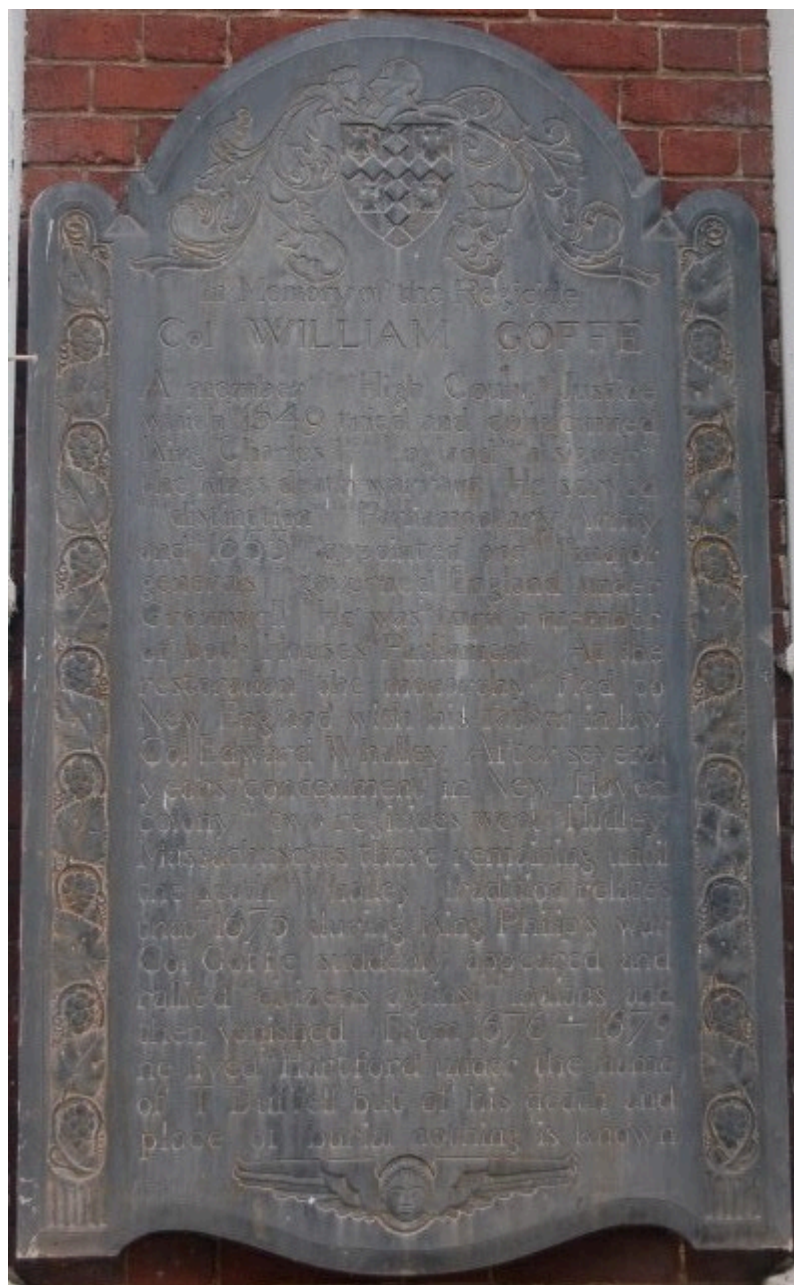 In Memory of the Regicide
Col WILLIAM GOFFE
A member High Court Justice
which 1649 tried and condemned
King Charles I England a signer
the kings death warrant He served
distinction Parliamentary Army
and appointed one major
generals governed England under
Cromwell he was a member
of both Houses Parliament At the
restoration the monarchy fled to
New England with his father in law
Col Edward Whalley After several
years concealment in New Haven
colony two regicides went Hadley
Massachusetts there remaining until
the death Whalley Tradition relates
that 1675 during King Philips war
Col Goffe suddenly appeared and
rallied citizens against Indians and
then vanished From 1676 – 1679
he lived Hartford under the name
of T Duffell but of his death and
place of burial nothing is known